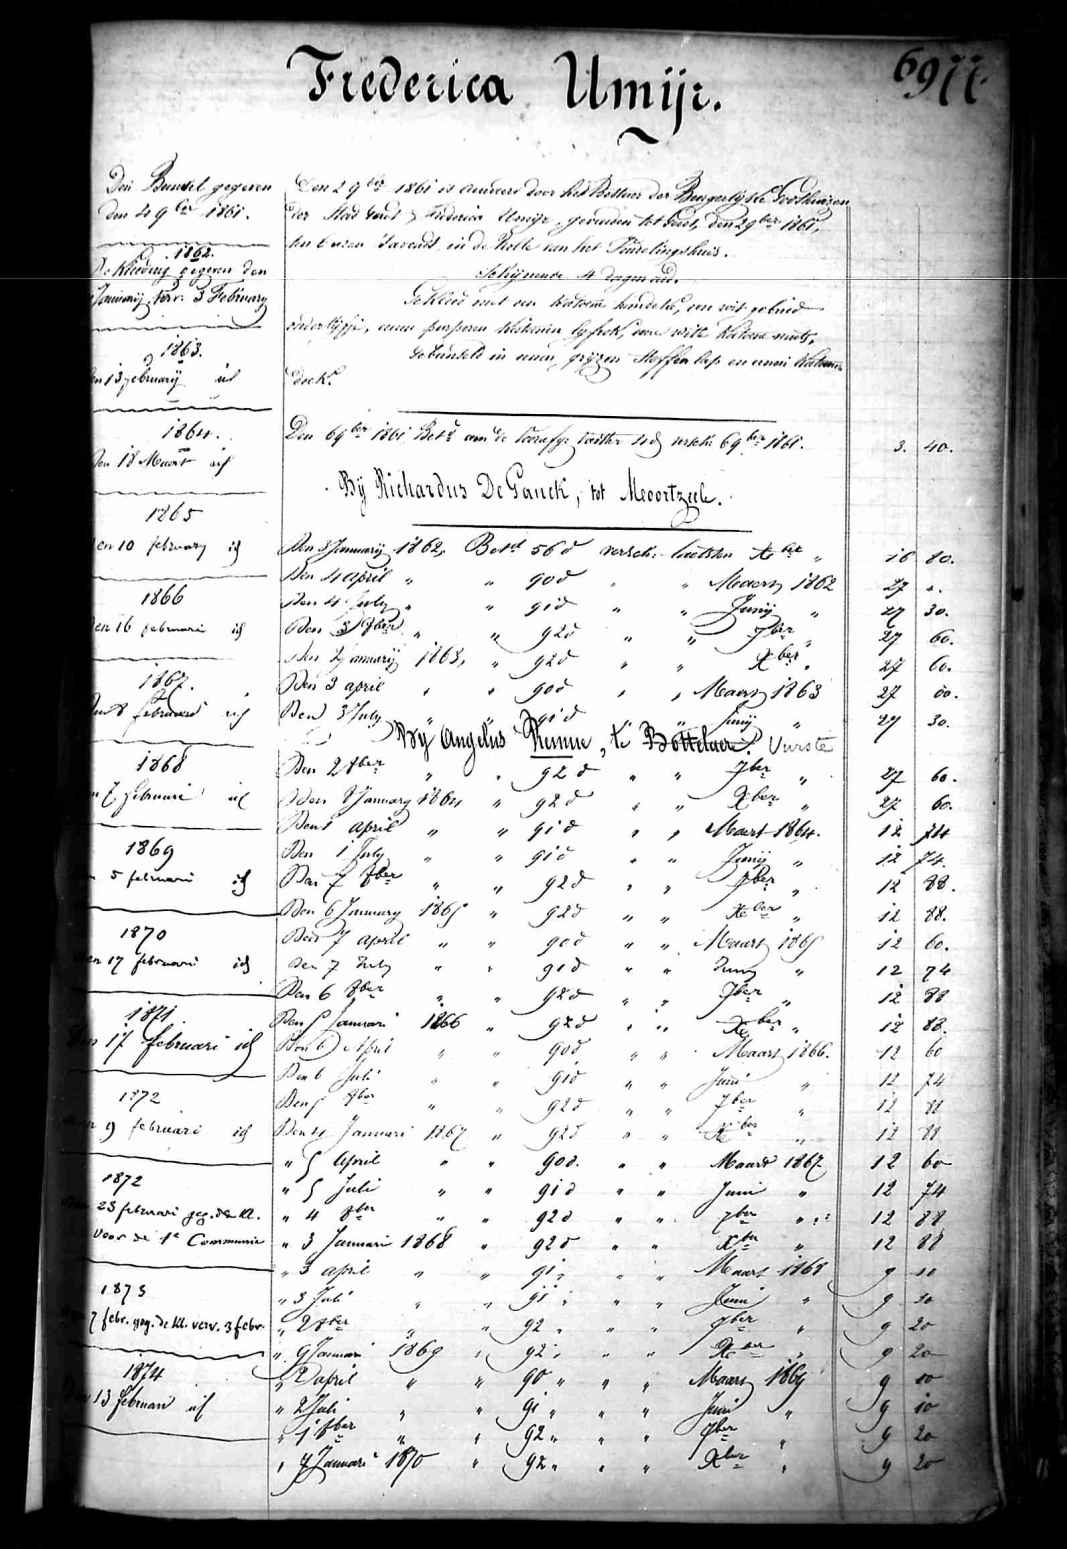 Frederica Umijr.
6977.
Den Bundel gegeven
den 4 9ber 1861.
1862.
De Kleeding gegeven den
Januarij, verv. 3 February
1863.
en 13 february id
1864.
den 18 Maart id
1865
en 10 february id
1866
en 16 februari id
1867.
februari id
1868
7 februari id
1869
5 februari id
1870
en 17 februari id
1871
17 februari id
1872
9 februari id
1872
23 februari geg. de Kl.
voor de 1e Communie
1873
7 febr. geg. de Kl. verv. 3 febr.
1874
13 februari id
Den 2 9ber 1861 is aanveerd door het Bestuer der Burgerlijke Godshuizen
der Stad Gend, Frederica Umijr, gevonden tot Gent, den 2 9ber 1861,
ten 6 uren 's avonds in de Rolle van het Vondelingshuis.
Schijnende 4 dagen oud.
Gekleed met een katoen hemdeke, een wit gebreid
onderlijfje, eenen katoenen lijfrok, eene witte katoene muts,
Gebunseld in eenen grijzen stoffen lap en eenen katoenen
doek.
Den 6 9ber 1861 Bet. aan de 6 9ber 1861. 3. 40.
Bij Richardus De Ganck, tot Moortzeele.
Den 3 Januarij 1862, Betd 56 d versch. Xber " 16 80.
Den 4 april " " 90 d " " Maert 1862 27 ".
Den 4 July " " 91 d " " Junij " 27 30.
Den 3 8ber " " 92 d " " 7ber " 27 60.
Den 2 januarij 1863, " 92 d " " Xber " 27 60.
Den 3 april " " 90 d " " Maert 1863 27 00.
Den 3 July " 91 d " Junij " 27 30.
Bij Angelus Remue, te Bottelaer. Vurste
Den 2 8ber " " 92 d " " 7ber " 27 60.
Den 8 January 1864 " 92 d " " Xber " 27 60.
Den 1 april " " 91 d " " Maert 1864. 12 74
Den 1 July " " 91 d " " Junij " 12 74.
Den 7 8ber " " 92 d " " 7ber " 12 88.
Den 6 January 1865 " 92 d " " Xber " 12 88.
Den 7 april " " 90 d " " Maart 1865 12 60.
Den 7 July " " 91 d " " Juny " 12 74
Den 6 8ber " " 92 d " " 7ber " 12 88
Den 5 Januari 1866 " 92 d " " Xber " 12 88.
Den 6 April " " 90 d " " Maart 1866. 12 60
Den 6 Juli " " 91 d " " Juni " 12 74
Den 5 8ber " " 92 d " " 7ber " 12 88
Den 4 Januari 1867 " 92 d " " Xber " 12 88
" 5 April " " 90 d. " " Maart 1867 12 60
" 5 Juli " " 91 d " " Juni " 12 74
" 4 8ber " " 92 d " " 7ber " 12 88
" 3 Januari 1868 " 92 d " " Xber " 12 88
" 3 april " " 91 " " " Maart 1868 9 10
" 3 Juli " " 91 " " " Juni " 9 10
" 2 8ber " " 92 " " " 7ber " 9 20
" 9 Januari 1869 " 92 " " " Xber " 9 20
" 2 april " " 90 " " " Maart 1869 9 00
" 2 Juli " " 91 " " " Juni " 9 10
" 1 8ber " " 92 " " " 7ber " 9 20
" 7 Januari 1870 " 92 " " " Xber " 9 20